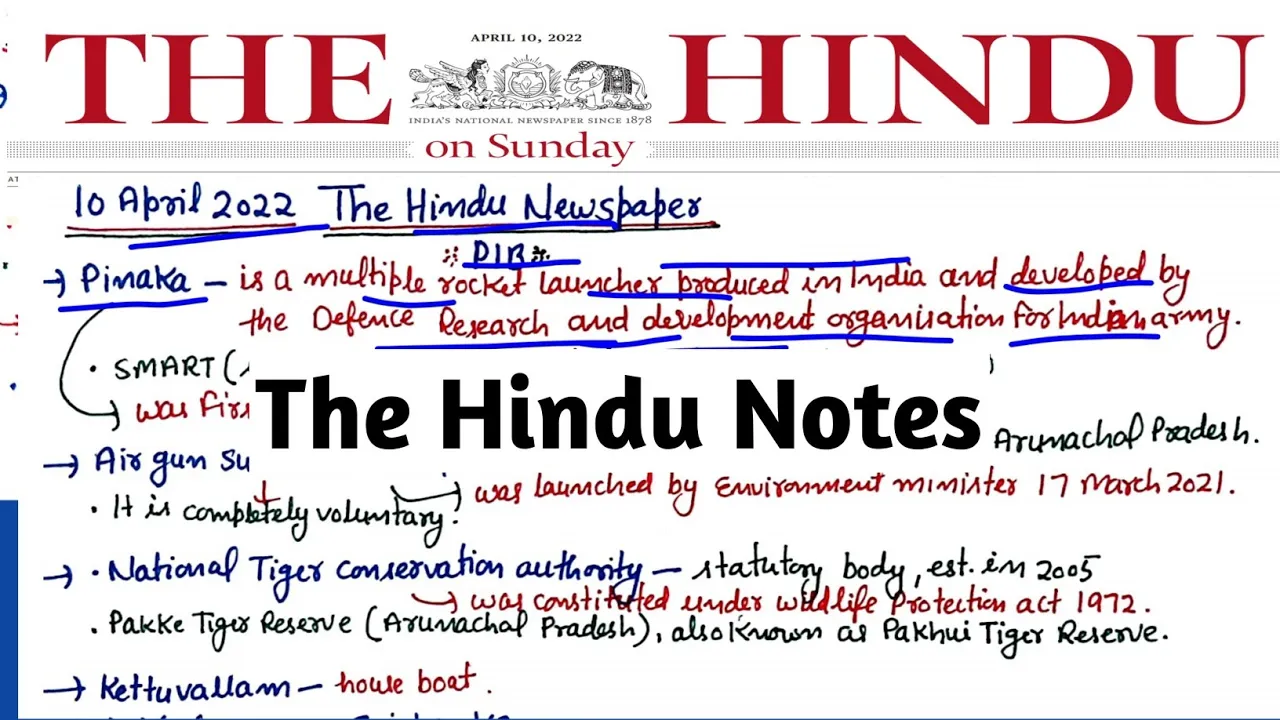 APRIL 10, 2022
THE HINDU
INDIA'S NATIONAL NEWSPAPER SINCE 1878
on Sunday
10 April 2022 The Hindu Newspaper
PIB
→ Pinaka – is a multiple rocket launcher produced in India and developed by
the Defence Research and development organisation for Indian army.
• SMART (
↳ was firs
The Hindu Notes
Arunachal Pradesh.
→ Air gun su
↳ was launched by Environment minister 17 March 2021.
• It is completely voluntary.
→ • National Tiger conservation authority – statutory body, est. in 2005
↳ was constituted under wildlife Protection act 1972.
• Pakke Tiger Reserve (Arunachal Pradesh), also known as Pakhui Tiger Reserve.
→ Kettuvallam – house boat.